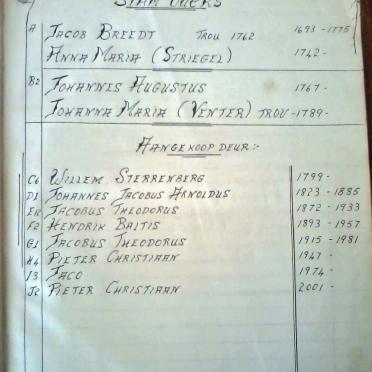 STAM OUERS
A JACOB BREEDT TROU 1762 1693 - 1775
ANNA MARIA (STRIEGEL) 1742 -
B2 JOHANNES AUGUSTUS 1767 -
JOHANNA MARIA (VENTER) TROU - 1789 -
AANGEKNOOP DEUR:-
C6 WILLEM STERRENBERG 1799 -
D1 JOHANNES JACOBUS ARNOLDUS 1823 - 1885
E12 JACOBUS THEODORUS 1872 - 1933
F2 HENDRIK BALTIS 1893 - 1957
G1 JACOBUS THEODORUS 1915 - 1981
H4 PIETER CHRISTIAAN 1947 -
I3 JACO 1974 -
J2 PIETER CHRISTIAAN 2001 -